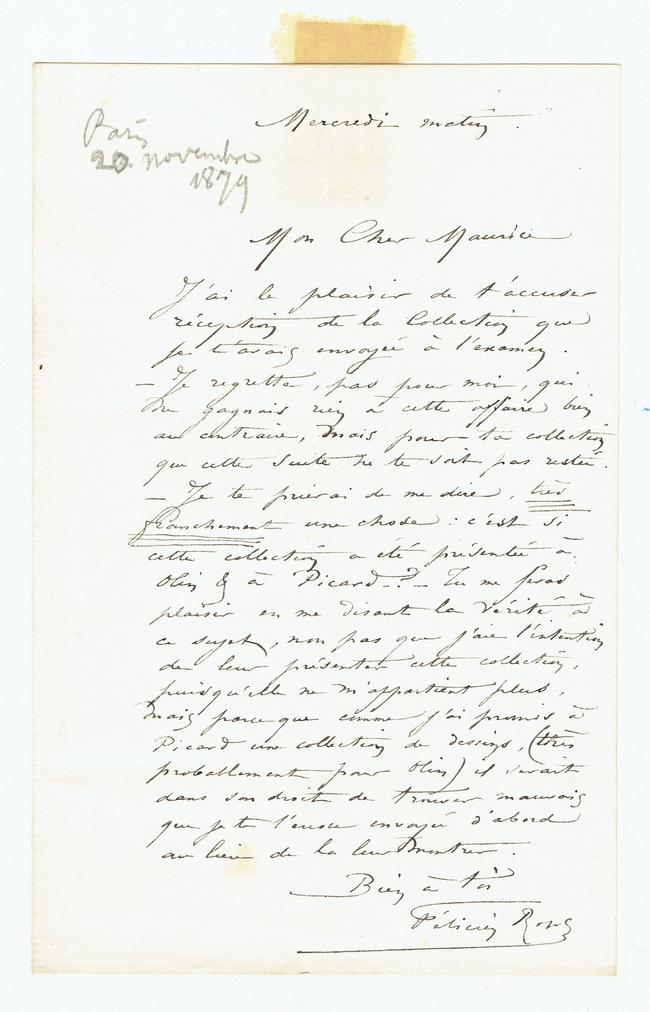 Paris
20 novembre
1879
Mercredi matin.
Mon Cher Maurice
J'ai le plaisir de t'accuser
réception de la Collection que
je t'avais envoyée à l'examen.
— Je regrette, pas pour moi, qui
ne gagnais rien à cette affaire bien
au contraire, mais pour ta collection
que cette suite ne te soit pas restée.
— Je te prierai de me dire, très
franchement une chose : c'est si
cette collection a été présentée à
Olin & à Picard_?_ Tu me feras
plaisir en me disant la vérité à
ce sujet, non pas que j'aie l'intention
de leur présenter cette collection,
puisqu'elle ne m'appartient plus,
mais parce que comme j'ai promis à
Picard une collection de dessins, (très
probablement pour Olin) il serait
dans son droit de trouver mauvais
que je te l'eusse envoyée d'abord
au lieu de la leur montrer.
Bien à toi
Félicien Rops